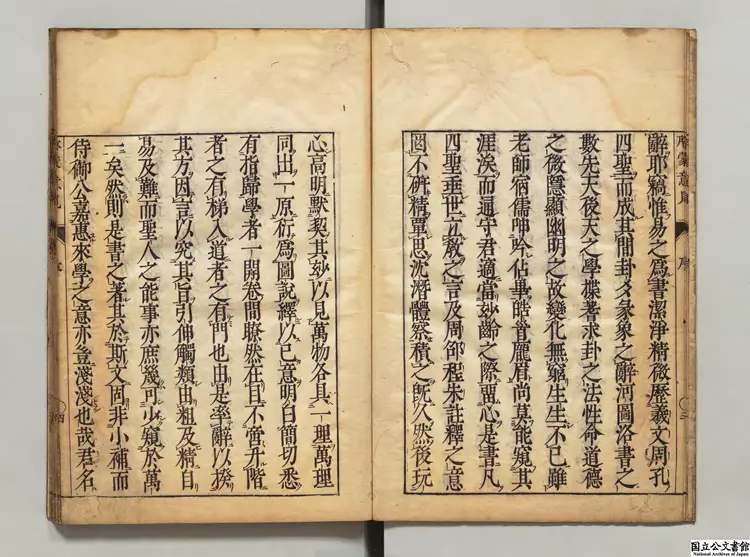 辭耶竊惟易之爲書潔淨精微歷羲文周孔
四聖而成其間卦爻彖象之辭河圖洛書之
數先天後天之學揲蓍求卦之法性命道德
之微隱顯幽明之故變化無窮生生不已雖
老師宿儒呻吟佔畢皓首龐眉尚莫能窺其
涯涘而通守君適當妙齡之際留心是書凡
四聖垂世立教之言及周邵程朱註釋之意
罔不硏精覃思沈潛體察積之旣久然後玩
心高明默契其妙以見萬物各具一理萬理
同出一原衍爲圖說繹以已意明白簡切悉
有指歸學者一開卷間瞭然在目不啻升階
者之有梯入道者之有門也由是率辭以揆
其方因言以究其旨引伸觸類由粗及精自
易及難而聖人之能事亦庶幾可少窺於萬
一矣然則是書之著其於斯文固非小補而
侍御公嘉惠來學之意亦豈淺淺也哉君名
国立公文書館
National Archives of Japan